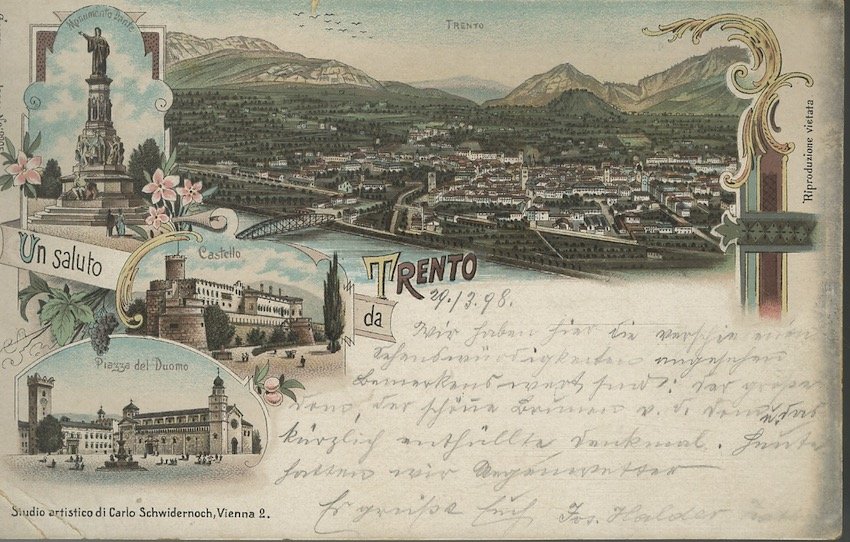 Monumento Dante
TRENTO
Riproduzione vietata
Un saluto
Castello
da
TRENTO
Piazza del Duomo
29./3.98.
Wir haben hier die verschiedenen
Sehenswürdigkeiten angesehen
Bemerkenswert sind: der große
Dom, der schöne Brunnen v. d. Dom u. das
kürzlich enthüllte Denkmal. Heute
hatten wir Regenwetter
Es grüßt Euch Jos. Halder
Studio artistico di Carlo Schwidernoch, Vienna 2.